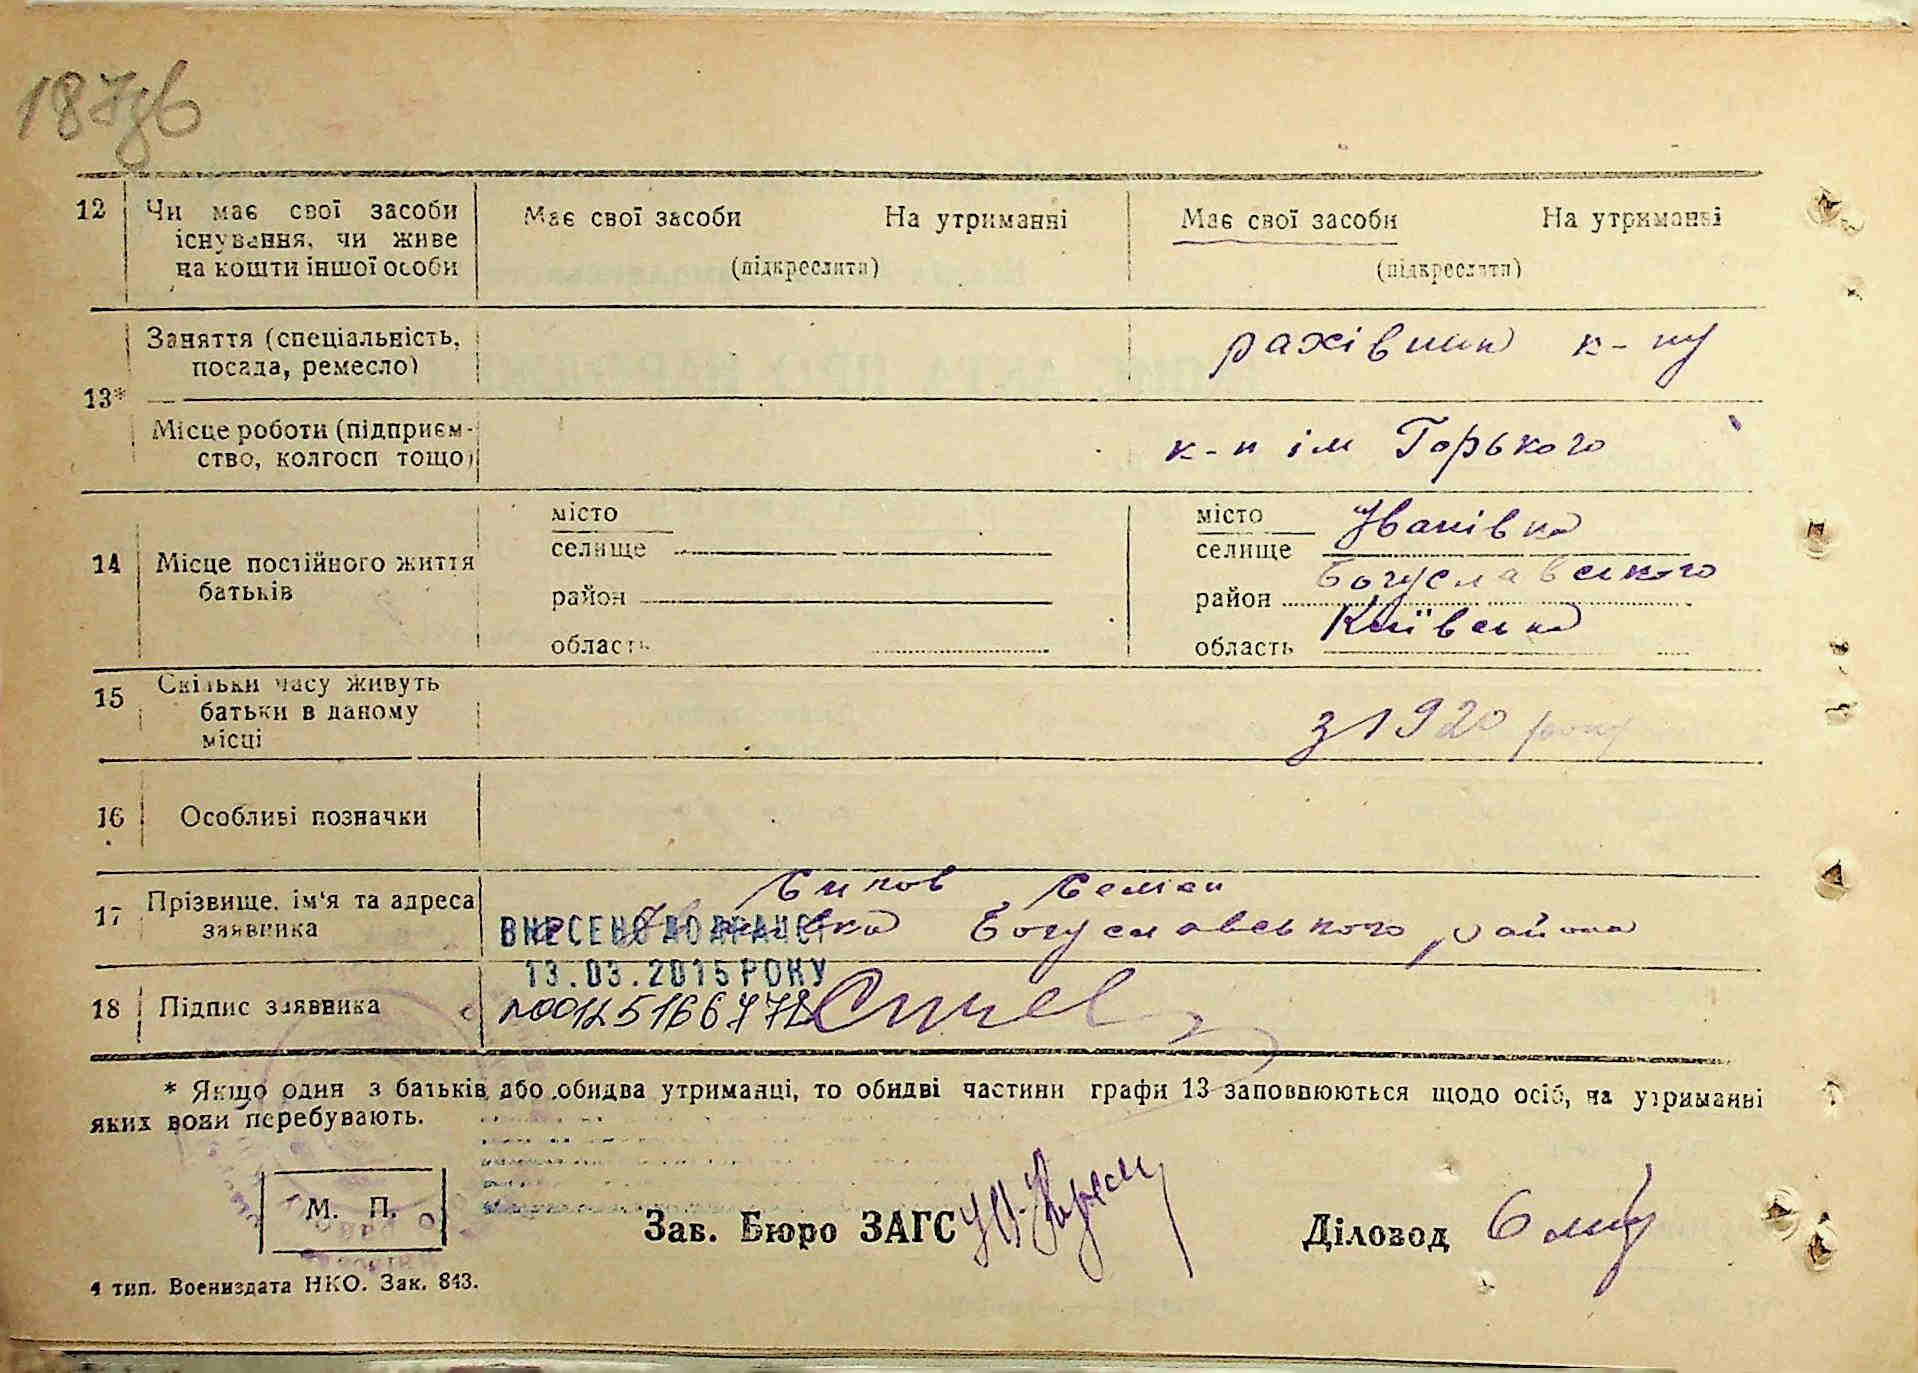 187зв
12 Чи має свої засоби існування, чи живе на кошти іншої особи
Має свої засоби На утриманні
(підкреслити)
Має свої засоби На утриманні
(підкреслити)
13*
Заняття (спеціальність, посада, ремесло)
рахівник к-пу
Місце роботи (підприємство, колгосп тощо)
к-п ім Горького
14 Місце постійного життя батьків
місто
селище
район
область
місто
селище Іванівка
район Богуславського
область Київська
15 Скільки часу живуть батьки в даному місці
з 1920 року
16 Особливі позначки
17 Прізвище, ім'я та адреса заявника
Семен
Іванівка Богуславського района
ВНЕСЕНО ДО ДРАЦСГ
13.03.2015 РОКУ
18 Підпис заявника
* Якщо один з батьків або обидва утриманці, то обидві частини графи 13 заповнюються щодо осіб, на утриманні
яких вони перебувають.
М. П.
Зав. Бюро ЗАГС
Діловод
4 тип. Воениздата НКО. Зак. 843.